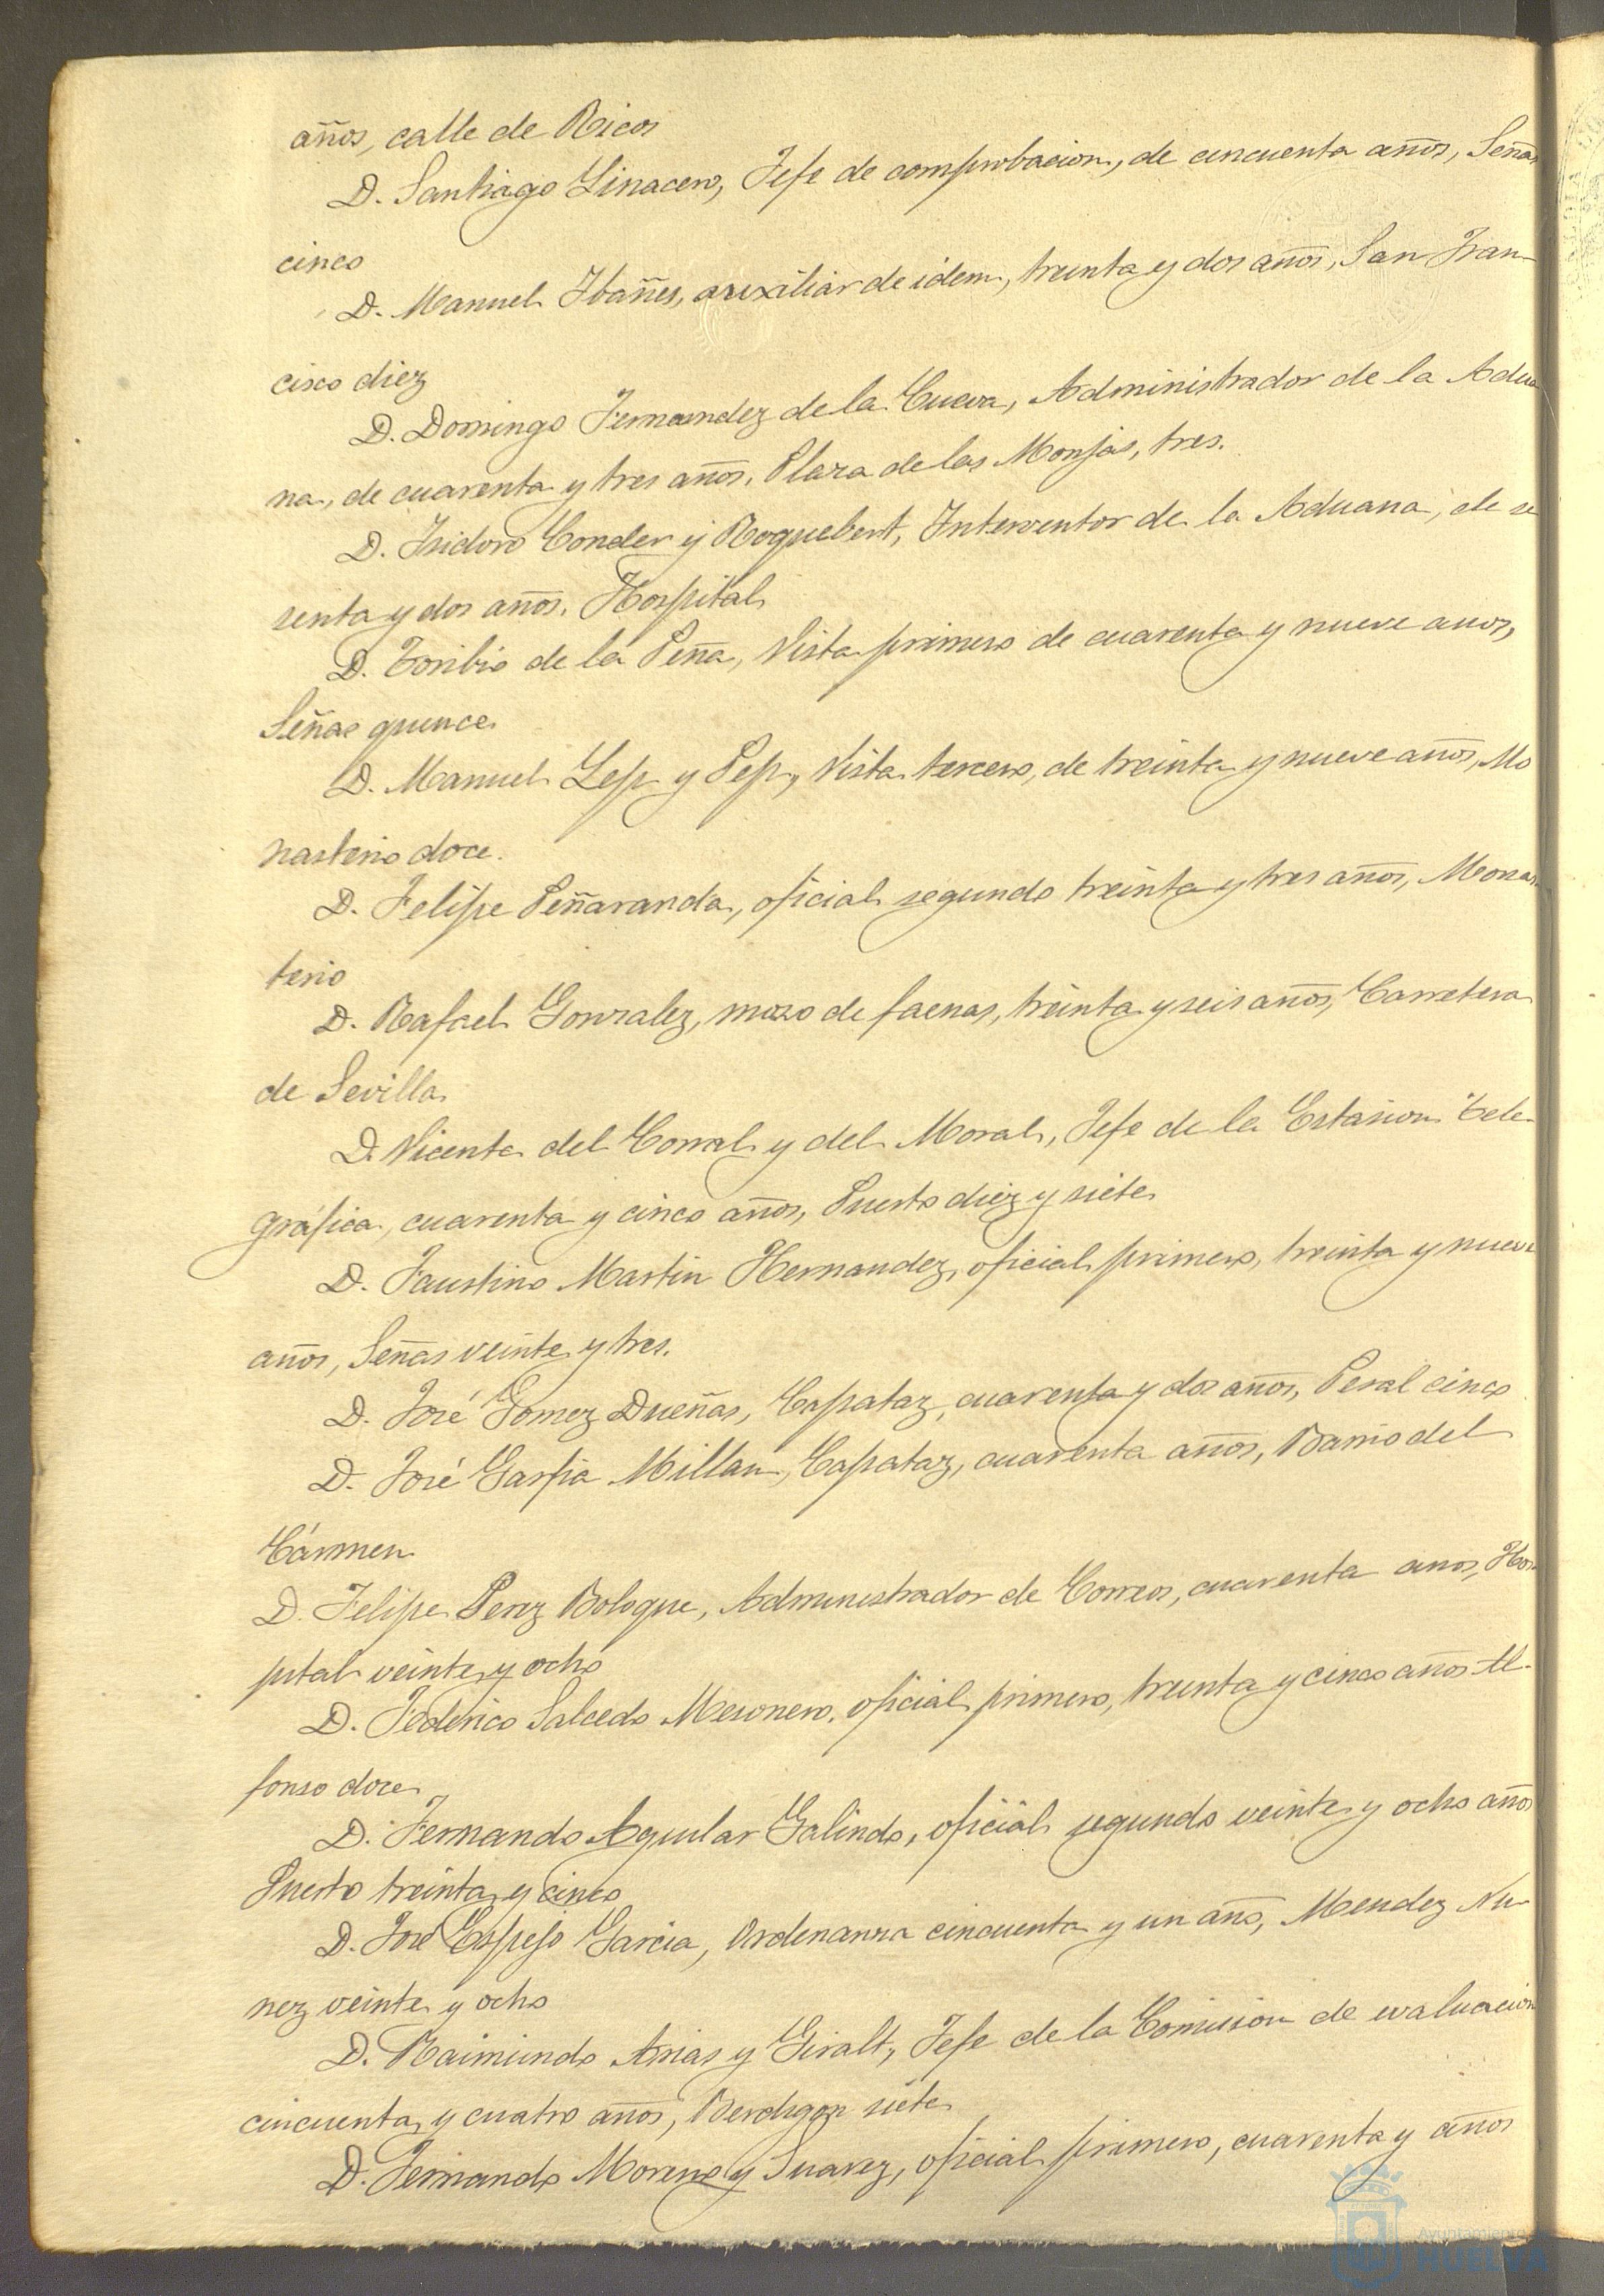 años, calle de Ricos
D. Santiago Linacero, Jefe de comprobacion, de cincuenta años, Señas
cinco
D. Manuel Ibañes, auxiliar de idem, treinta y dos años, San Fran-
cisco diez
D. Domingo Fernandez de la Cueva, Administrador de la Adua
na, de cuarenta y tres años, Plaza de las Monjas, tres.
D. Isidoro Conder y Roquebert, Interventor de la Aduana, de se
senta y dos años, Hospital
D. Toribio de la Peña, Vista primero de cuarenta y nueve años,
Señas quince
D. Manuel Lep y Pep, Vista tercero, de treinta y nueve años, Mo
nasterio doce.
D. Felipe Peñaranda, oficial segundo treinta y tres años, Monas
terio
D. Rafael Gonzalez, mozo de faenas, treinta y seis años, Carretera
de Sevilla
D. Vicente del Corral y del Moral, Jefe de la Estacion Tele-
gráfica, cuarenta y cinco años, Puerto diez y siete
D. Faustino Martin Hernandez, oficial primero, treinta y nueve
años, Señas veinte y tres.
D. José Gomez Dueñas, Capataz, cuarenta y dos años, Peral cinco
D. José Garfia Millan, Capataz, cuarenta años, Barrio del
Cármen
D. Felipe Perez Bologue, Administrador de Correos, cuarenta años, Hos
pital veinte y ocho
D. Federico Salcedo Mesonero, oficial primero, treinta y cinco años Al-
fonso doce
D. Fernando Aguilar Galindo, oficial segundo veinte y ocho años
Puerto treinta y cinco
D. José Espejo Garcia, Ordenanza cincuenta y un año, Mendez Nu-
nez veinte y ocho
D. Raimundo Arias y Giralt, Jefe de la Comision de evaluacion
cincuenta y cuatro años, Berdigon siete
D. Fernando Moreno y Suarez, oficial primero, cuarenta y años
Ayuntamiento
HUELVA